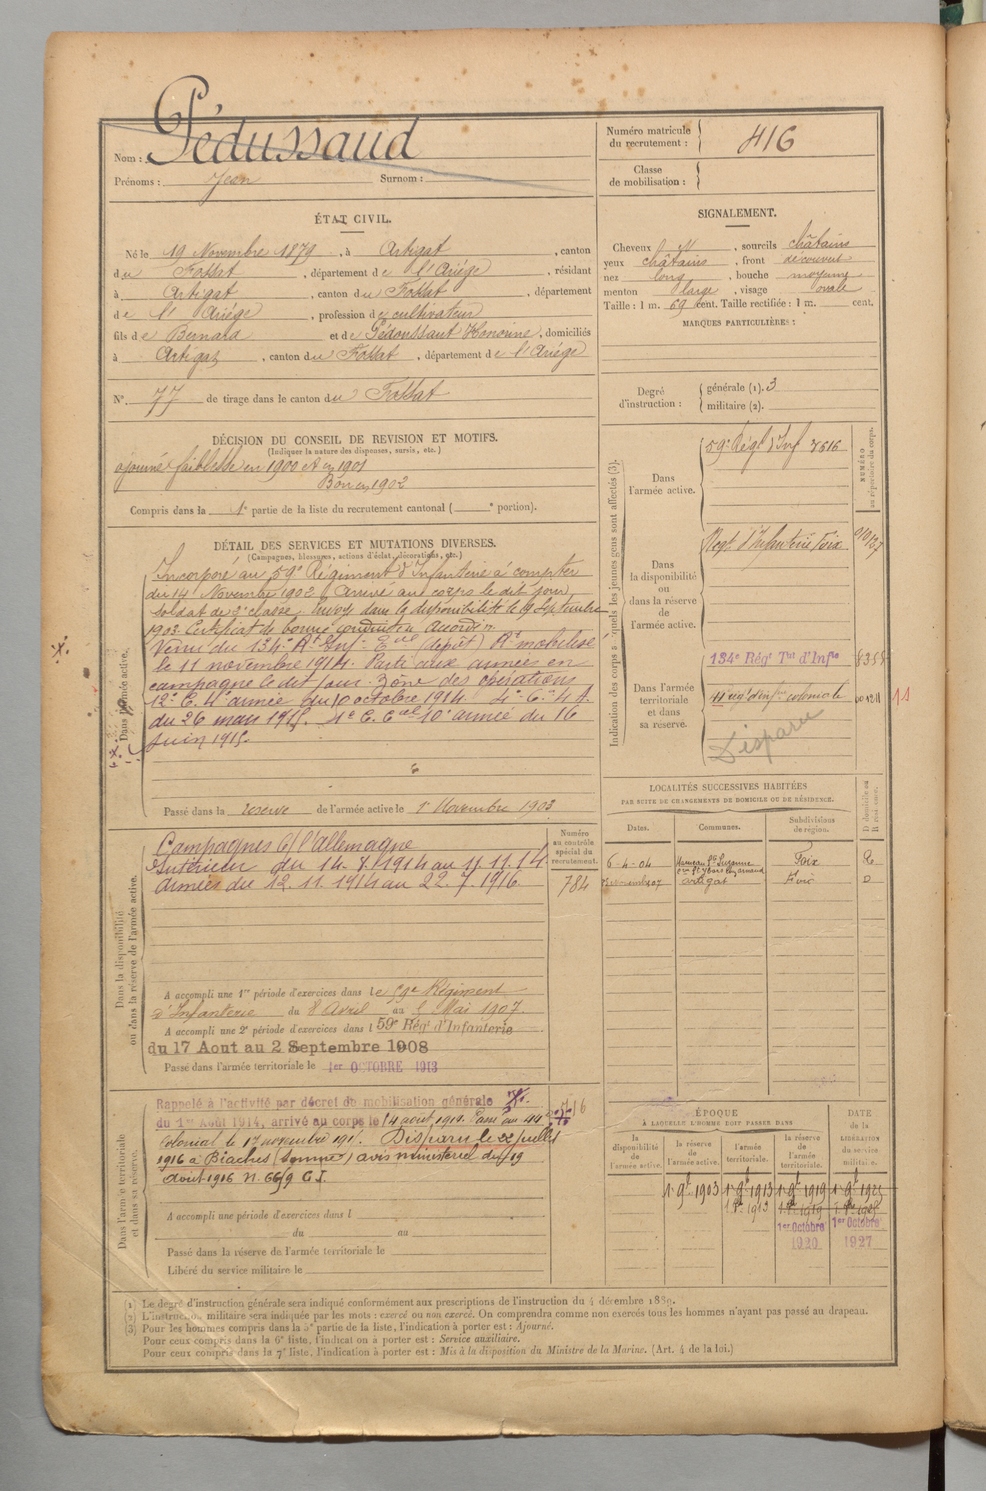 Nom : Pédussaud
Prénoms : Jean Surnom :
Numéro matricule du recrutement : 416
Classe de mobilisation :
ÉTAT CIVIL.
Né le 19 Novembre 1879, à Artigat, canton
du Fossat, département de l'Ariége, résidant
à Artigat, canton du Fossat, département
de l'Ariége, profession de cultivateur
fils de Bernard et de Pédoussaut Honorine, domiciliés
à Artigat, canton du Fossat, département de l'Ariége
N° 77 de tirage dans le canton du Fossat
SIGNALEMENT.
Cheveux , sourcils châtains
yeux châtains, front découvert
nez long, bouche moyenne
menton large, visage ovale
Taille : 1 m. 69 cent. Taille rectifiée : 1 m. cent.
MARQUES PARTICULIÈRES :
Degré d'instruction : générale (1). 3
militaire (2).
DÉCISION DU CONSEIL DE REVISION ET MOTIFS.
(Indiquer la nature des dispenses, sursis, etc.)
ajourné faiblesse en 1900 et en 1901
Bon en 1902
Compris dans la 1e partie de la liste du recrutement cantonal ( e portion).
DÉTAIL DES SERVICES ET MUTATIONS DIVERSES.
(Campagnes, blessures, actions d'éclat, décorations, etc.)
Dans l'armée active.
Incorporé au 59e Régiment d'Infanterie à compter
du 14 Novembre 1902 Arrivé au corps le dit jour,
soldat de 2e classe. Envoyé dans la disponibilité le 19 Septembre
1903. Certificat de bonne conduite Accordé
Venu du 134e Rt Inf. Eal (dépôt) Rt mobilisé
le 11 novembre 1914. Parti aux armées en
campagne le dit jour. Zône des opérations
12e C. 4e armée du 10 octobre 1914 4e C. 4 A.
du 26 mars 1915. 4e C. Eal 10e armée du 16
Juin 1915.
Passé dans la reserve de l'armée active le 1er Novembre 1903
Indication des corps auxquels les jeunes gens sont affectés (3).
NUMÉRO au répertoire du corps.
Dans l'armée active.
59e Régt d'Inf 7616
Dans la disponibilité ou dans la réserve de l'armée active.
Regt d'Infanterie Foix
Dans l'armée territoriale et dans sa réserve.
134e Régt Tal d'Infie
44 régt d'inf. coloniale
Disparu
Dans la disponibilité ou dans la réserve de l'armée active.
Campagnes C/ l'allemagne
Intérieur du 14.8.1914 au 11.11.14
Armées du 12.11.1914 au 22.7.1916.
Numéro au contrôle spécial du recrutement.
784
A accompli une 1re période d'exercices dans le 59e Régiment
d'Infanterie du 8 Avril au 5 Mai 1907.
A accompli une 2e période d'exercices dans l 59e Régt d'Infanterie
du 17 Aout au 2 Septembre 1908
Passé dans l'armée territoriale le 1er OCTOBRE 1913
LOCALITÉS SUCCESSIVES HABITÉES
PAR SUITE DE CHANGEMENTS DE DOMICILE OU DE RÉSIDENCE.
Dates. Communes. Subdivisions de région. D domicile ou R résidence.
6-4-04 Hameau Ste Suzanne Foix R
Artigat Foix D
Dans l'armée territoriale et dans sa réserve.
Rappelé à l'activité par décret de mobilisation générale
du 1er Août 1914, arrivé au corps le 14 août 1914. Passé au 44e
Colonial le 17 novembre 1915. Disparu le 22 juillet
1916 à Biaches (Somme) avis ministeriel du 19
Août 1916 N. 6659 G.I.
A accompli une période d'exercices dans l
du au
Passé dans la réserve de l'armée territoriale le
Libéré du service militaire le
ÉPOQUE
À LAQUELLE L'HOMME DOIT PASSER DANS
DATE DE LA LIBÉRATION du service militaire.
la disponibilité de l'armée active.
la réserve de l'armée active.
l'armée territoriale.
la réserve de l'armée territoriale.
1er 9bre 1903 1er 9bre 1913 1er 9bre 1919
1er Octobre 1920
1er Octobre 1927
(1) Le degré d'instruction générale sera indiqué conformément aux prescriptions de l'instruction du 4 décembre 1889.
(2) L'instruction militaire sera indiquée par les mots : exercé ou non exercé. On comprendra comme non exercés tous les hommes n'ayant pas passé au drapeau.
(3) Pour les hommes compris dans la 5e partie de la liste, l'indication à porter est : Ajourné.
Pour ceux compris dans la 6e liste, l'indication à porter est : Service auxiliaire.
Pour ceux compris dans la 7e liste, l'indication à porter est : Mis à la disposition du Ministre de la Marine. (Art. 4 de la loi.)